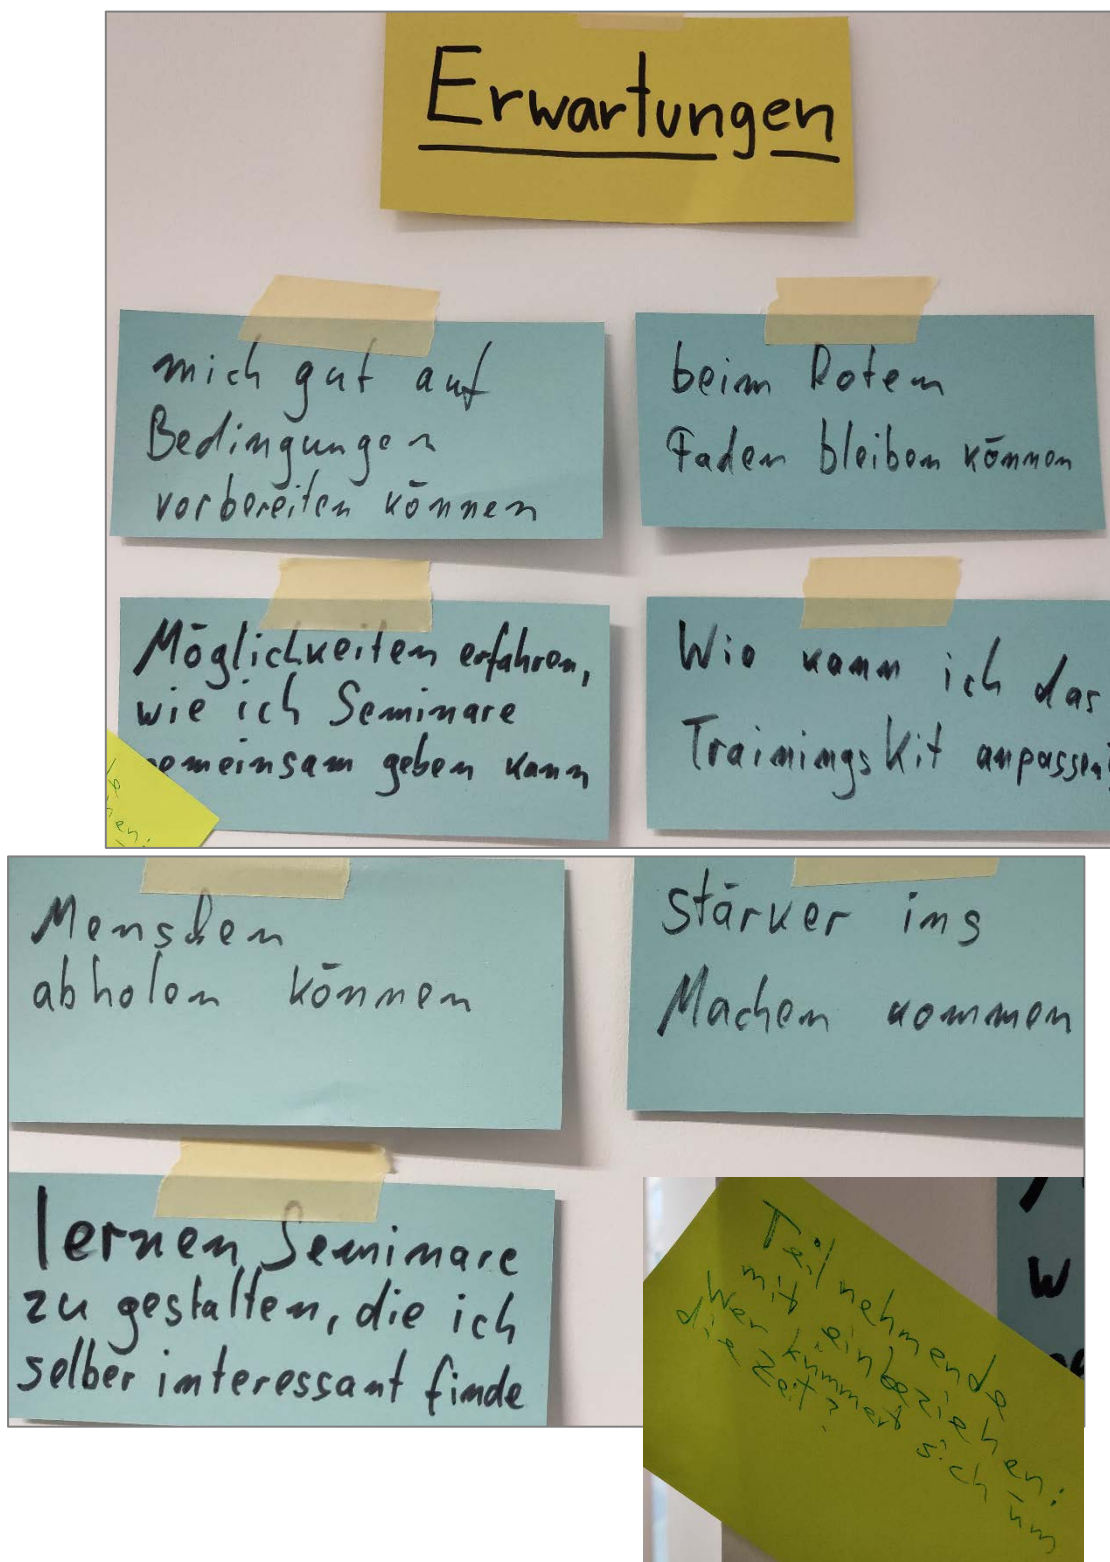 Erwartungen
mich gut auf
Bedingungen
vorbereiten können
beim Roten
Faden bleiben können
Möglichkeiten erfahren,
wie ich Seminare
gemeinsam geben kann
Wie kann ich das
TrainingsKit anpassen?
Menschen
abholen können
stärker ins
Machen kommen
lernen Seminare
zu gestalten, die ich
selber interessant finde
Teilnehmende
mit einbeziehen:
Wer kümmert sich um
die Zeit?